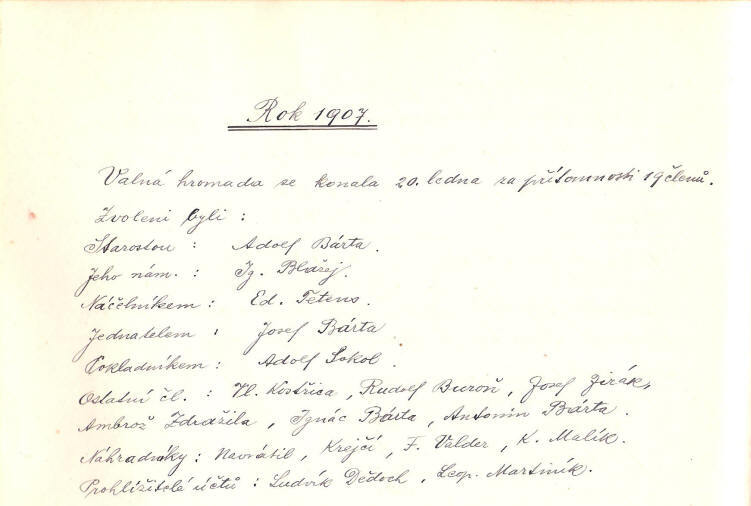 Rok 1907.
Valná hromada se konala 20. ledna za přítomnosti 19 členů.
Zvoleni byli :
Starostou : Adolf Bárta.
Jeho nám. : Ig. Blažej.
Náčelníkem : Ed. Tetens.
Jednatelem : Josef Bárta
Pokladníkem : Adolf Sokol.
Ostatní čl. : Vl. Kostřica, Rudolf Buroň, Josef Jirák,
Ambrož Zdražila, Ignác Bárta, Antonín Bárta.
Náhradníky : Navrátil, Krejčí, F. Valder, K. Malík.
Prohlížitelé účtů : Ludvík Dědoch, Leop. Martiník.